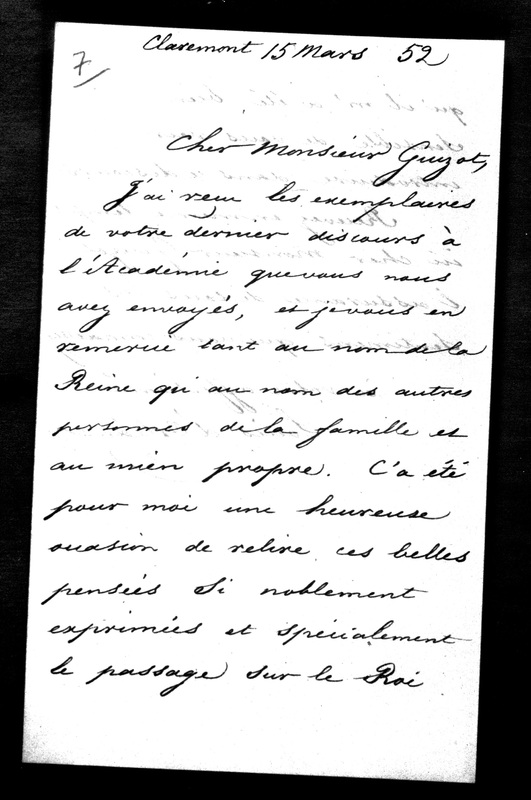 7
Claremont 15 Mars 52
Cher Monsieur Guizot,
J'ai reçu les exemplaires
de votre dernier discours à
l'Académie que vous nous
avez envoyés, et je vous en
remercie tant au nom de la
Reine qu'au nom des autres
personnes de la famille et
au mien propre. C'a été
pour moi une heureuse
occasion de relire ces belles
pensées si noblement
exprimées et spécialement
le passage sur le Roi